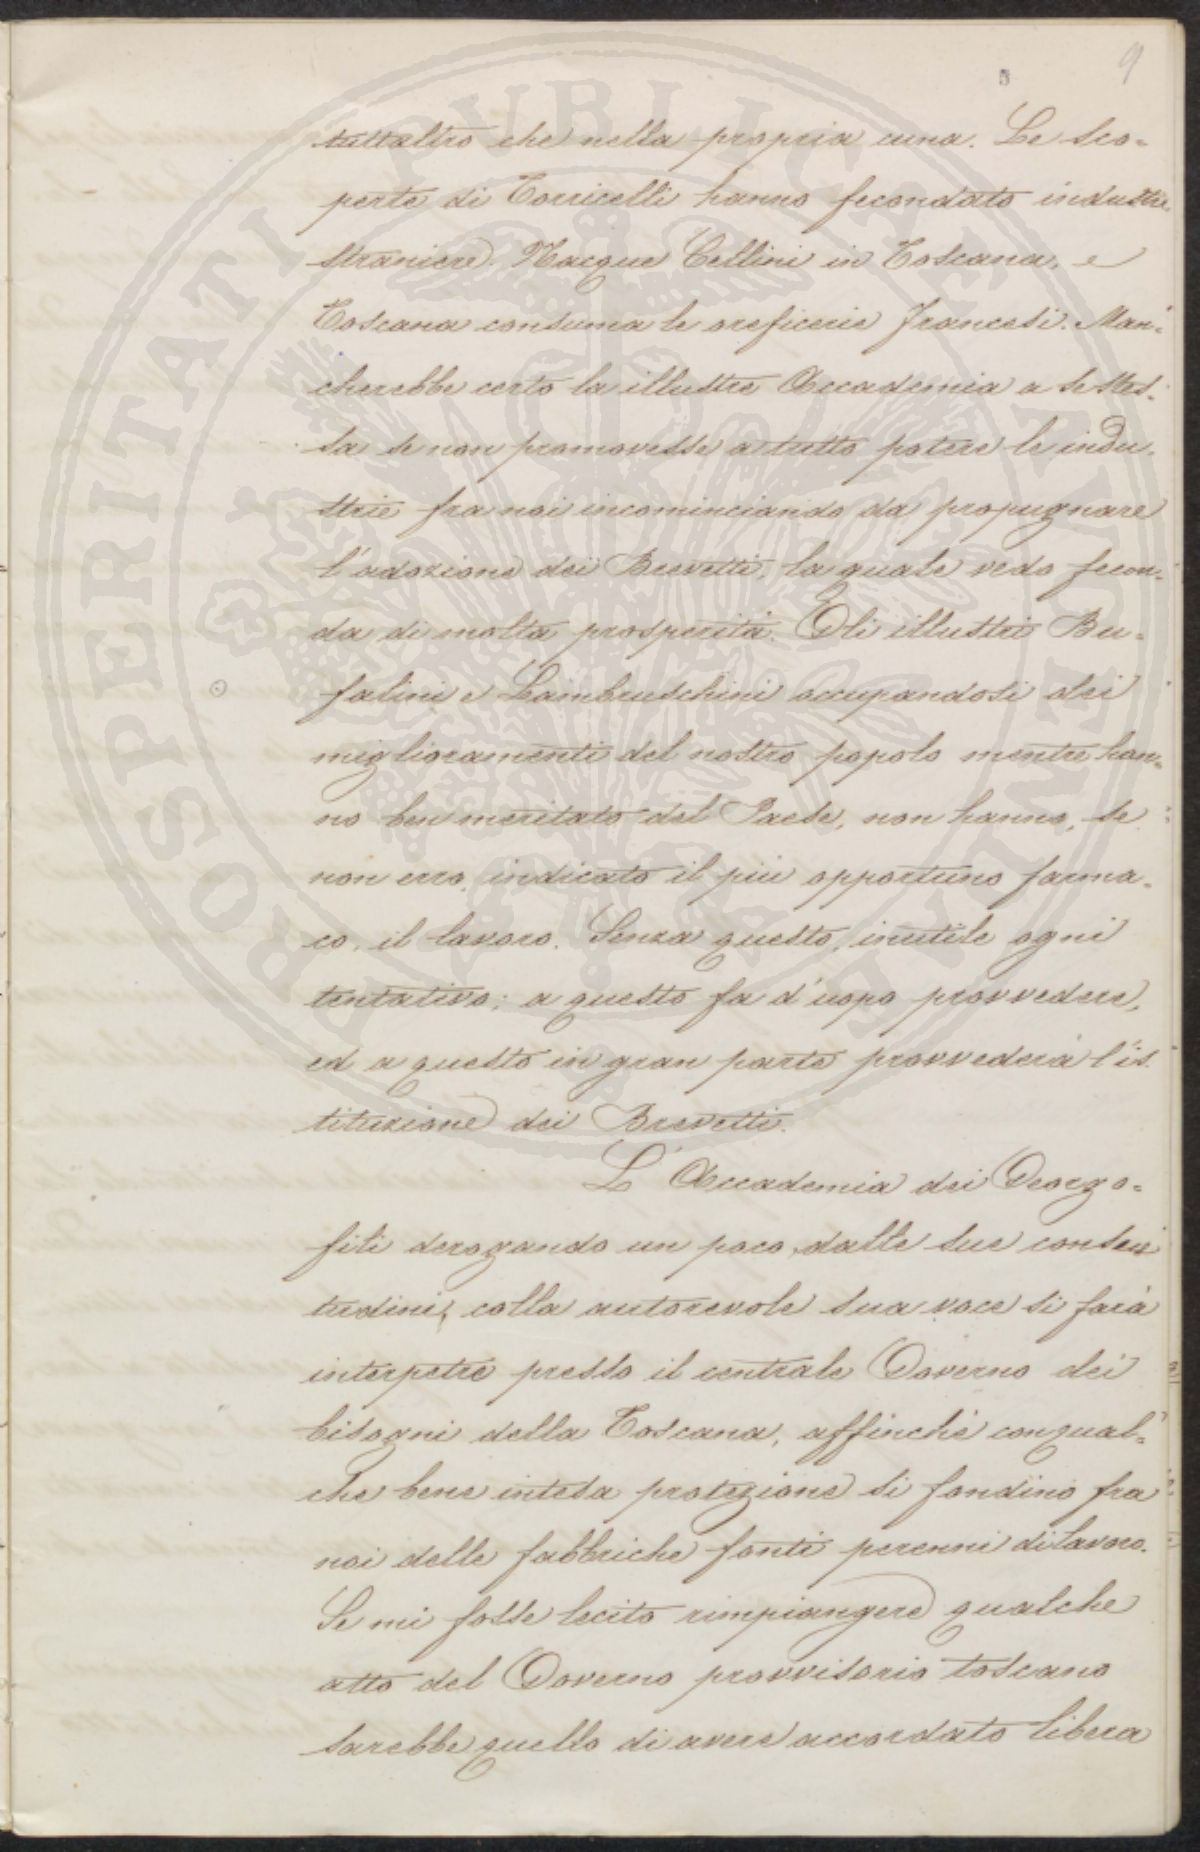 9
tuttaltro che nella propria cuna. Le sco=
perte di Torricelli hanno fecondato industrie
straniere. Nacque Cellini in Toscana, e
Toscana consuma le oreficerie francesi. Man=
cherebbe certo la illustre Accademia a se stes=
sa se non promovesse a tutto potere le indu=
strie fra noi incominciando da propugnare
l'adozione dei Brevetti, la quale vedo fecon=
da di molta prosperità. Gli illustri Bu=
falini e Lambruschini occupandosi dei
miglioramenti del nostro popolo mentre han=
no ben meritato del Paese, non hanno, se
non erro, indicato il più opportuno farma=
co, il lavoro. Senza questo, inutile ogni
tentativo; a questo fa d'uopo provvedere,
ed a questo in gran parte provvederà l'is
tituzione dei Brevetti.
L'Accademia dei Georgo=
fili derogando un poco dalle sue consue
tudini, colla autorevole sua voce si farà
interpetre presso il centrale Governo dei
bisogni della Toscana, affinchè con qual=
che bene intesa protezione si fondino fra
noi delle fabbriche fonti perenni di lavoro.
Se mi fosse lecito rimpiangere qualche
atto del Governo provvisorio toscano
sarebbe quello di avere accordato libera
PROSPERITATI PUBLICAE